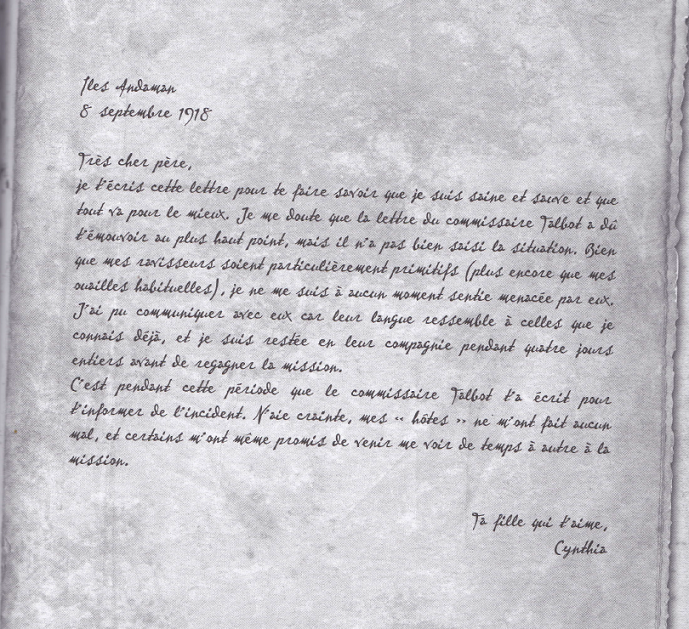 Iles Andaman
8 septembre 1918
Très cher père,
je t'écris cette lettre pour te faire savoir que je suis saine et sauve et que
tout va pour le mieux. Je me doute que la lettre du commissaire Talbot a dû
t'émouvoir au plus haut point, mais il n'a pas bien saisi la situation. Bien
que mes ravisseurs soient particulièrement primitifs (plus encore que mes
ouailles habituelles), je ne me suis à aucun moment sentie menacée par eux.
J'ai pu communiquer avec eux car leur langue ressemble à celles que je
connais déjà, et je suis restée en leur compagnie pendant quatre jours
entiers avant de regagner la mission.
C'est pendant cette période que le commissaire Talbot t'a écrit pour
t'informer de l'incident. N'aie crainte, mes « hôtes » ne m'ont fait aucun
mal, et certains m'ont même promis de venir me voir de temps à autre à la
mission.
Ta fille qui t'aime,
Cynthia